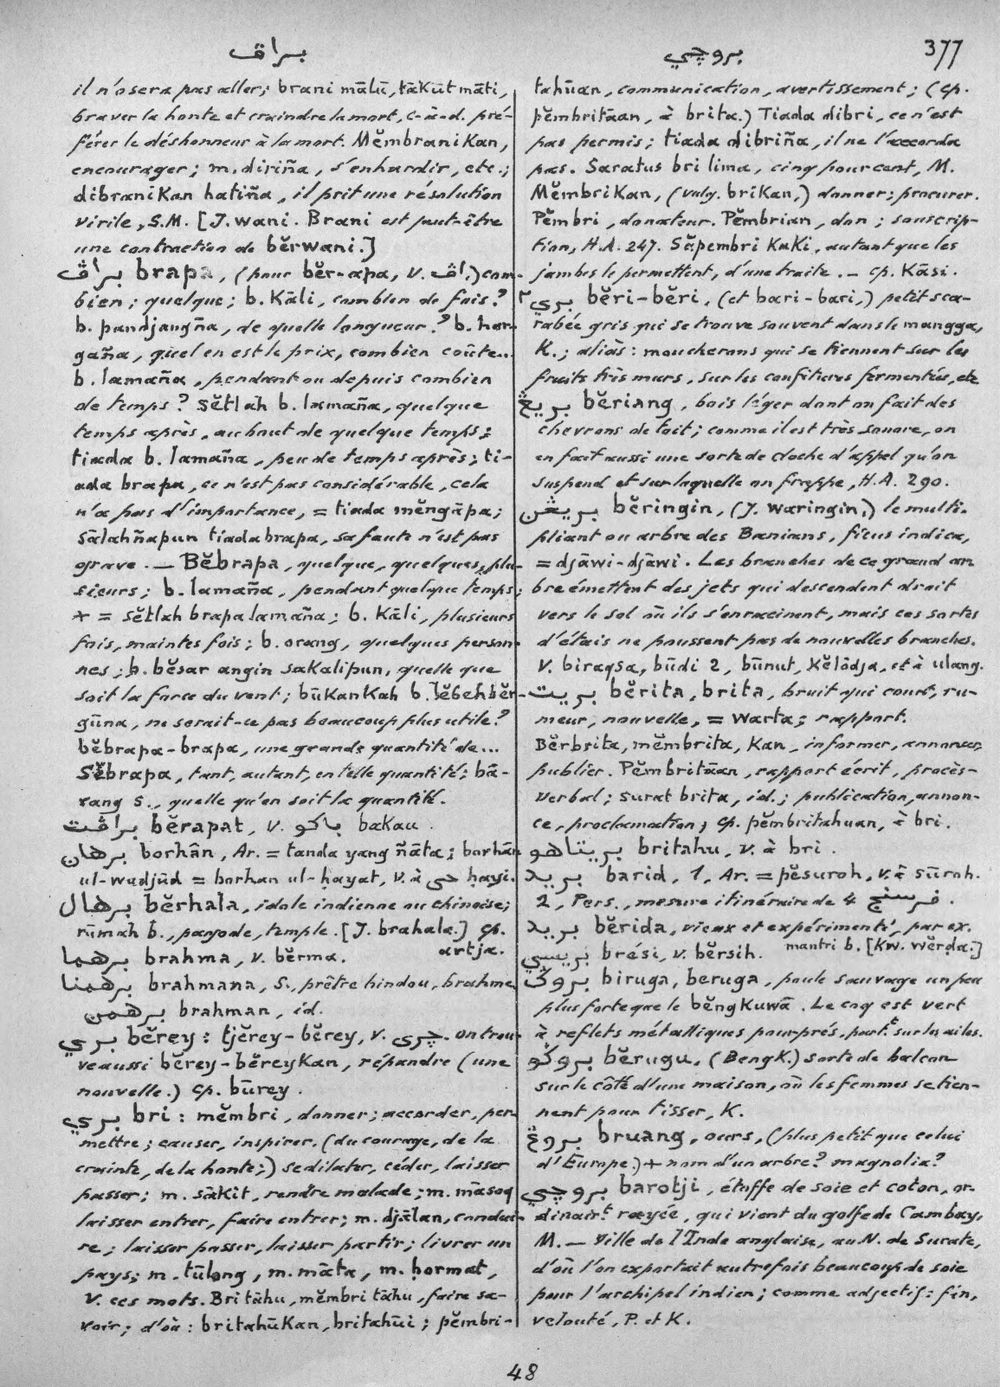 براڤ
بروچي
377
il n'osera pas aller; brani mālū, tākūt māti,
braver la honte et craindre la mort, c-à-d. pré-
férer le déshonneur à la mort. Mĕmbranikan,
encourager; m. diriña, s'enhardir, etc.;
dibranikan hatiña, il prit une résolution
virile, S.M. [J. wani. Brani est peut-être
une contraction de bĕrwani.]
براڤ brapa, (pour bĕr-apa, v. اڤ.) com-
bien; quelque; b. Kāli, combien de fois?
b. pandjangña, de quelle longueur? b. har-
gaña, quel en est le prix, combien coûte..
b. lamaña, pendant ou depuis combien
de temps? Sĕtlah b. lamaña, quelque
temps après, au bout de quelque temps;
tiada b. lamaña, peu de temps après; ti-
ada brapa, ce n'est pas considérable, cela
n'a pas d'importance, = tiada mĕngāpa;
sālahñapun tiada brapa, sa faute n'est pas
grave. — Bĕbrapa, quelque, quelques, plu-
sieurs; b. lamaña, pendant quelque temps;
+ = sĕtlah brapa lamaña; b. Kāli, plusieurs
fois, maintes fois; b. orang, quelques person-
nes; b. bĕsar angin sakalipun, quelle que
soit la force du vent; būkankah b. lĕbeh bĕr-
gūna, ne serait-ce pas beaucoup plus utile?
bĕbrapa-brapa, une grande quantité de...
Sĕbrapa, tant, autant, en telle quantité; bā-
rang s., quelle qu'en soit la quantité.
براڤت bĕrapat, v. باكو bakau.
برهان borhān, Ar. = tanda yang ñāta; borhān
ul-wudjūd = borhan ul-ḥayat, v. à حى ḥayi.
برهال bĕrhala, idole indienne ou chinoise;
rūmah b., pagode, temple. [J. brahala.] cp.
artja.
برهما brahma, v. bĕrma.
برهمنا brahmana, S., prêtre hindou, brahme
برهمن brahman, id.
بري bĕrey: tjĕrey-bĕrey, v. چرى. on trou-
ve aussi bĕrey-bĕreykan, répandre (une
nouvelle.) cp. būrey.
بري bri: mĕmbri, donner; accorder, per-
mettre; causer, inspirer, (du courage, de la
crainte, de la honte;) se dilater, céder, laisser
passer; m. sākit, rendre malade; m. māsoq
laisser entrer, faire entrer; m. djālan, condui-
re; laisser passer, laisser partir; livrer un
pays; m. tūlong, m. māta, m. ḥormat,
v. ces mots. Bri tāhu, mĕmbri tāhu, faire sa-
voir; d'où: britahūkan, britahūi; pĕmbri-
tahūan, communication, avertissement; (cp.
pĕmbritāan, à brita.) Tiada dibri, ce n'est
pas permis; tiada dibriña, il ne l'accorda
pas. Saratus bri lima, cinq pour cent, M.
Mĕmbrikan, (vulg. brikan,) donner; procurer.
Pĕmbri, donateur. Pĕmbrian, don; souscrip-
tion, H.A. 247. Săpembri kaki, autant que les
jambes le permettent, d'une traite. — cp. Kāsi.
بري٢ bĕri-bĕri, (et bari-bari,) petit sca-
rabée gris qui se trouve souvent dans le mangga,
K.; aliàs: moucherons qui se tiennent sur les
fruits très murs, sur les confitures fermentées, etc
بريڠ bĕriang, bois léger dont on fait des
chevrons de toit; comme il est très sonore, on
en fait aussi une sorte de cloche d'appel qu'on
suspend et sur laquelle on frappe, H.A. 290.
بريڠن bĕringin, (J. waringin,) le multi-
pliant ou arbre des Banians, ficus indica,
= djāwi-djāwi. Les branches de ce grand ar-
bre émettent des jets qui descendent droit
vers le sol où ils s'enracinent, mais ces sortes
d'étais ne poussent pas de nouvelles branches.
V. biraqsa, būdi 2, būnut, Kĕlōdja, et à ulang.
بريت bĕrita, brita, bruit qui court, ru-
meur, nouvelle, = warta; rapport.
Bĕrbrita, mĕmbrita, kan, informer, annoncer,
publier. Pĕmbritāan, rapport écrit, procès-
verbal; surat brita, id.; publication, annon-
ce, proclamation; cp. pĕmbritahuan, à bri.
بريتاهو britahu, v. à bri.
بريد barid, 1, Ar. = pĕsuroh, v. à sūroh.
2, Pers., mesure itinéraire de 4 فرسنج.
بريد bĕrida, vieux et expérimenté, par ex.
mantri b. [Kw. wĕrda.]
بريسي brési, v. bĕrsih.
بروݢ biruga, beruga, poule sauvage un peu
plus forte que le bĕngkuwā. Le coq est vert
à reflets métalliques pourprés, part.t sur la ailes.
بروݢو bĕrugu, (Bengk.) sorte de balcon
sur le côté d'une maison, où les femmes se tien-
nent pour tisser, K.
بروڠ bruang, ours, (plus petit que celui
d'Europe.) + nom d'un arbre? magnolia?
بروچي barotji, étoffe de soie et coton, or-
dinair.t rayée, qui vient du golfe de Cambay,
M. — Ville de l'Inde anglaise, au N. de Surate,
d'où l'on exportait autrefois beaucoup de soie
pour l'archipel indien; comme adjectif: fin,
velouté, P. et K.
48